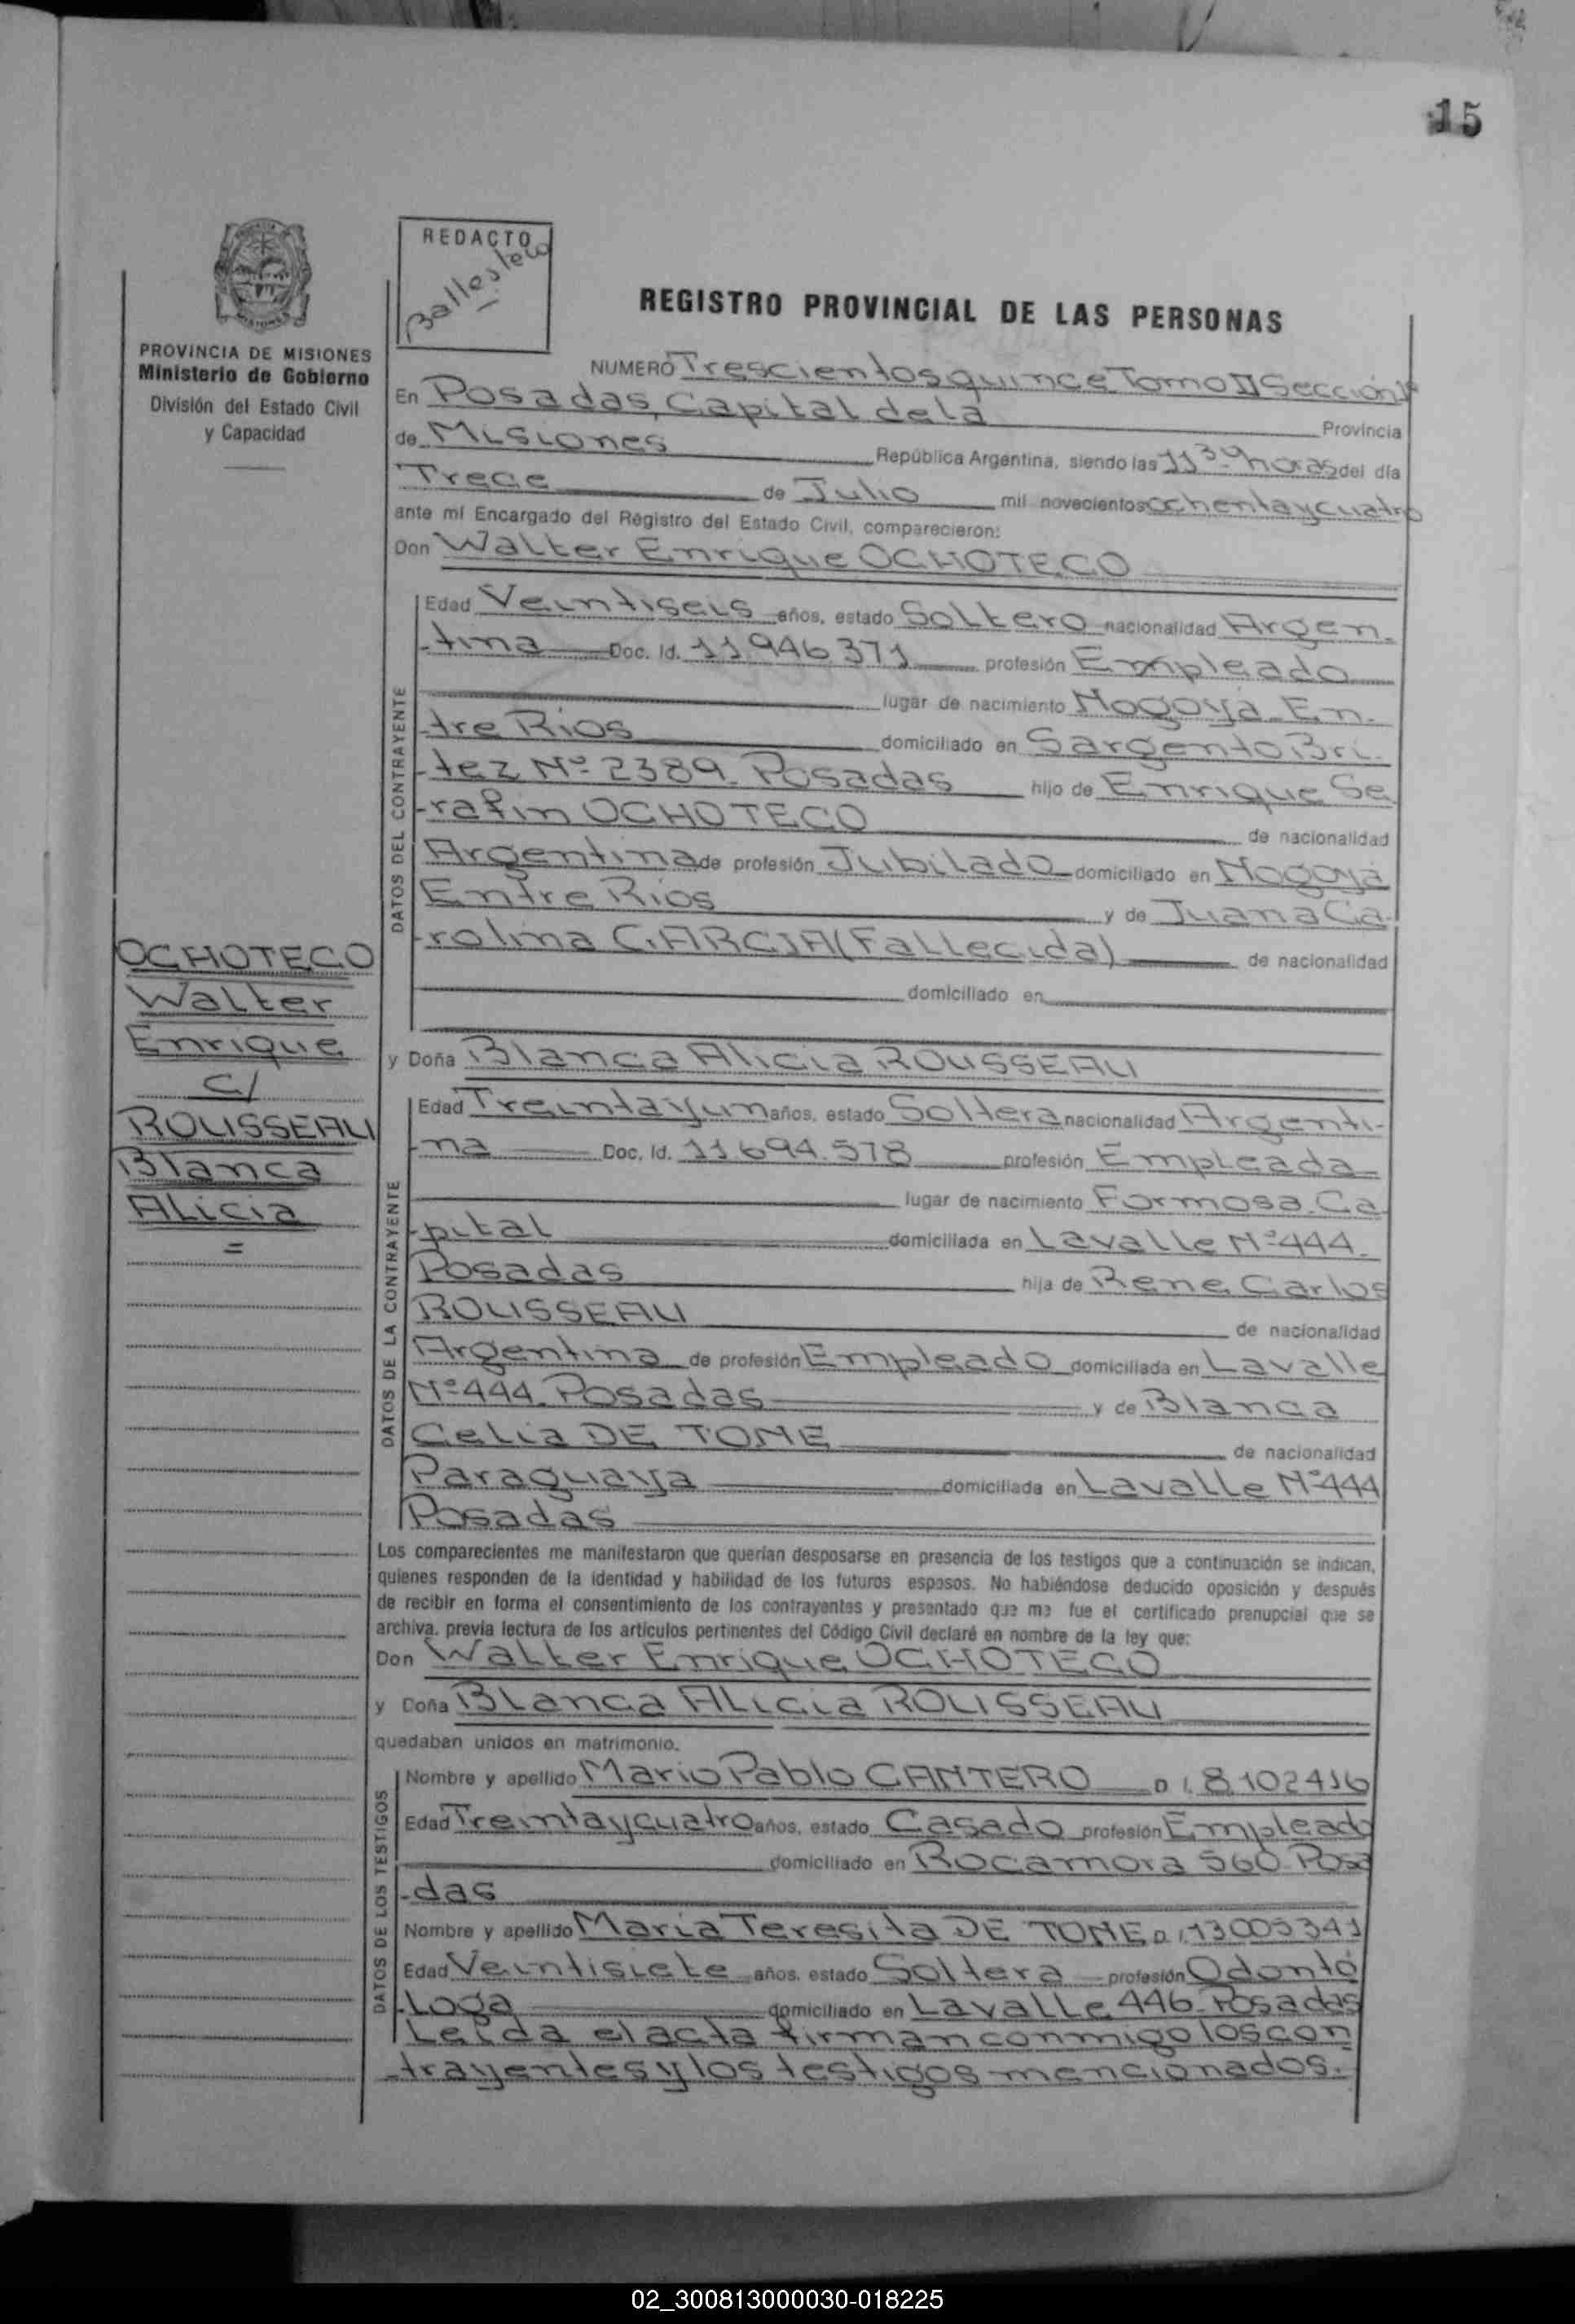 15
REDACTO
Ballestero
REGISTRO PROVINCIAL DE LAS PERSONAS
PROVINCIA DE MISIONES
Ministerio de Gobierno
División del Estado Civil
y Capacidad
NUMERO Trescientos quince Tomo II Sección
En Posadas, Capital de la Provincia
de Misiones República Argentina, siendo las 11 30 horas del día
Trece de Julio mil novecientos ochenta y cuatro
ante mí Encargado del Registro del Estado Civil, comparecieron:
Don Walter Enrique OCHOTECO
DATOS DEL CONTRAYENTE
Edad Veintiseis años, estado Soltero nacionalidad Argen-
-tina Doc. Id. 11.946.371 profesión Empleado
lugar de nacimiento Nogoyá En-
-tre Rios domiciliado en Sargento Bri-
-tez Nº 2389. Posadas hijo de Enrique Se
-rafin OCHOTECO de nacionalidad
Argentina de profesión Jubilado domiciliado en Nogoyá
Entre Rios y de Juana Ca-
-rolina GARCIA (Fallecida) de nacionalidad
domiciliado en
OCHOTECO
Walter
Enrique
c/
ROUSSEAU
Blanca
Alicia
=
y Doña Blanca Alicia ROUSSEAU
DATOS DE LA CONTRAYENTE
Edad Treinta y un años, estado Soltera nacionalidad Argenti-
-na Doc. Id. 11.694.578 profesión Empleada
lugar de nacimiento Formosa. Ca
-pital domiciliada en Lavalle Nº 444.
Posadas hija de Rene Carlos
ROUSSEAU de nacionalidad
Argentina de profesión Empleado domiciliada en Lavalle
Nº 444. Posadas y de Blanca
Celia DE TONE de nacionalidad
Paraguaya domiciliada en Lavalle Nº 444
Posadas
Los comparecientes me manifestaron que querían desposarse en presencia de los testigos que a continuación se indican,
quienes responden de la identidad y habilidad de los futuros esposos. No habiéndose deducido oposición y después
de recibir en forma el consentimiento de los contrayentes y presentado que me fue el certificado prenupcial que se
archiva, previa lectura de los artículos pertinentes del Código Civil declaré en nombre de la ley que:
Don Walter Enrique OCHOTECO
y Doña Blanca Alicia ROUSSEAU
quedaban unidos en matrimonio.
DATOS DE LOS TESTIGOS
Nombre y apellido Mario Pablo CANTERO D.I. 8.102416
Edad Treinta y cuatro años, estado Casado profesión Empleado
domiciliado en Rocamora 560. Posa
-das
Nombre y apellido Maria Teresita DE TONE D.I. 13005341
Edad Veintisiete años, estado Soltera profesión Odontó
-loga domiciliado en Lavalle 446. Posadas
Leída el acta firman conmigo los con
-trayentes y los testigos mencionados.-
02_300813000030-018225